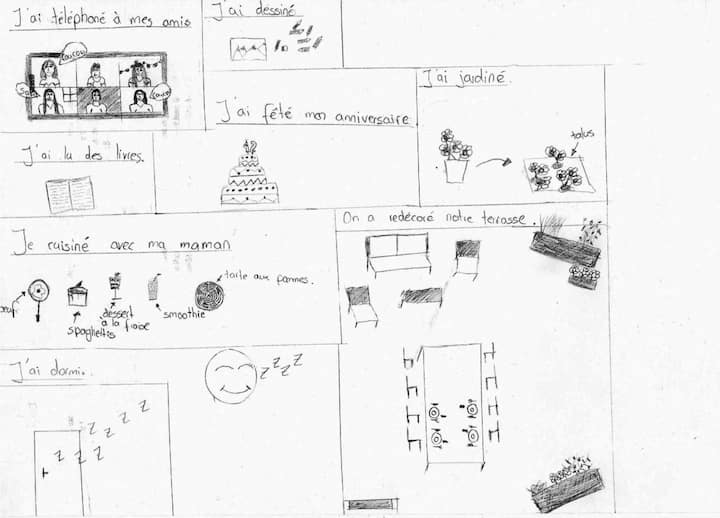 J'ai téléphoné à mes amis
coucou
J'ai dessiné.
J'ai fêté mon anniversaire.
12
J'ai jardiné.
talus
J'ai lu des livres.
Je cuisiné avec ma maman
tarte aux pommes.
spaghettis
dessert
à la
smoothie
On a redécoré notre terrasse.
J'ai dormi.
z z z z
z z z z z z z